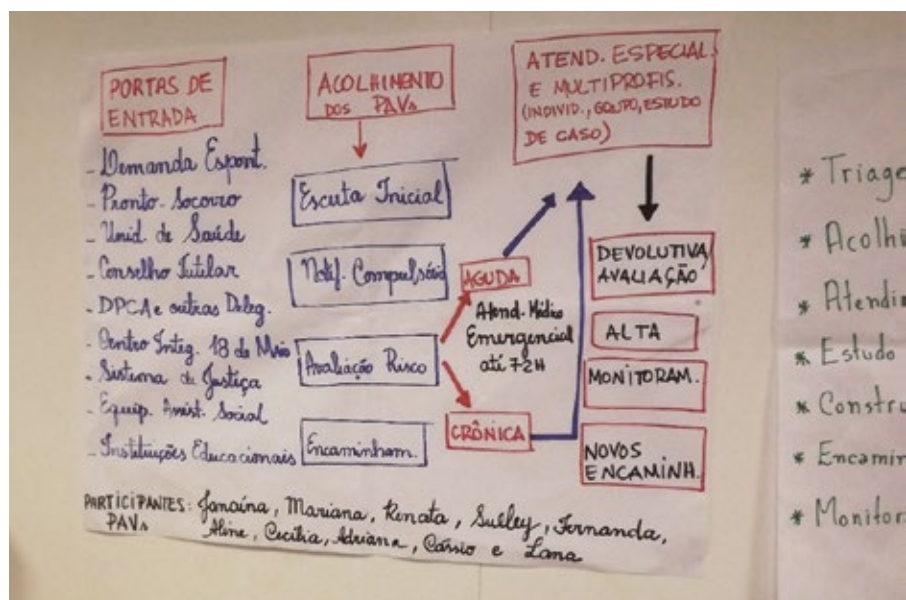 PORTAS DE
ENTRADA
- Demanda Espont.
- Pronto-Socorro
- Unid. de Saúde
- Conselho Tutelar
- DPCA e outras Deleg.
- Centro Integ. 18 de Maio
- Sistema de Justiça
- Equip. Assist. Social
- Instituições Educacionais
ACOLHIMENTO
DOS PAVs
Escuta Inicial
Notif. Compulsória
Avaliação Risco
Encaminham.
AGUDA
Atend. Médico
Emergencial
até 72H
CRÔNICA
ATEND. ESPECIAL.
E MULTIPROFIS.
(INDIVID., GRUPO, ESTUDO
DE CASO)
DEVOLUTIVA/
AVALIAÇÃO
ALTA
MONITORAM.
NOVOS
ENCAMINH.
PARTICIPANTES: Janaína, Mariana, Renata, Suelley, Fernanda,
PAVs Aline, Cecília, Adriana, Cássio e Lana
* Triage
* Acolhi
* Atendi
* Estudo
* Constru
* Encamin
* Monitor